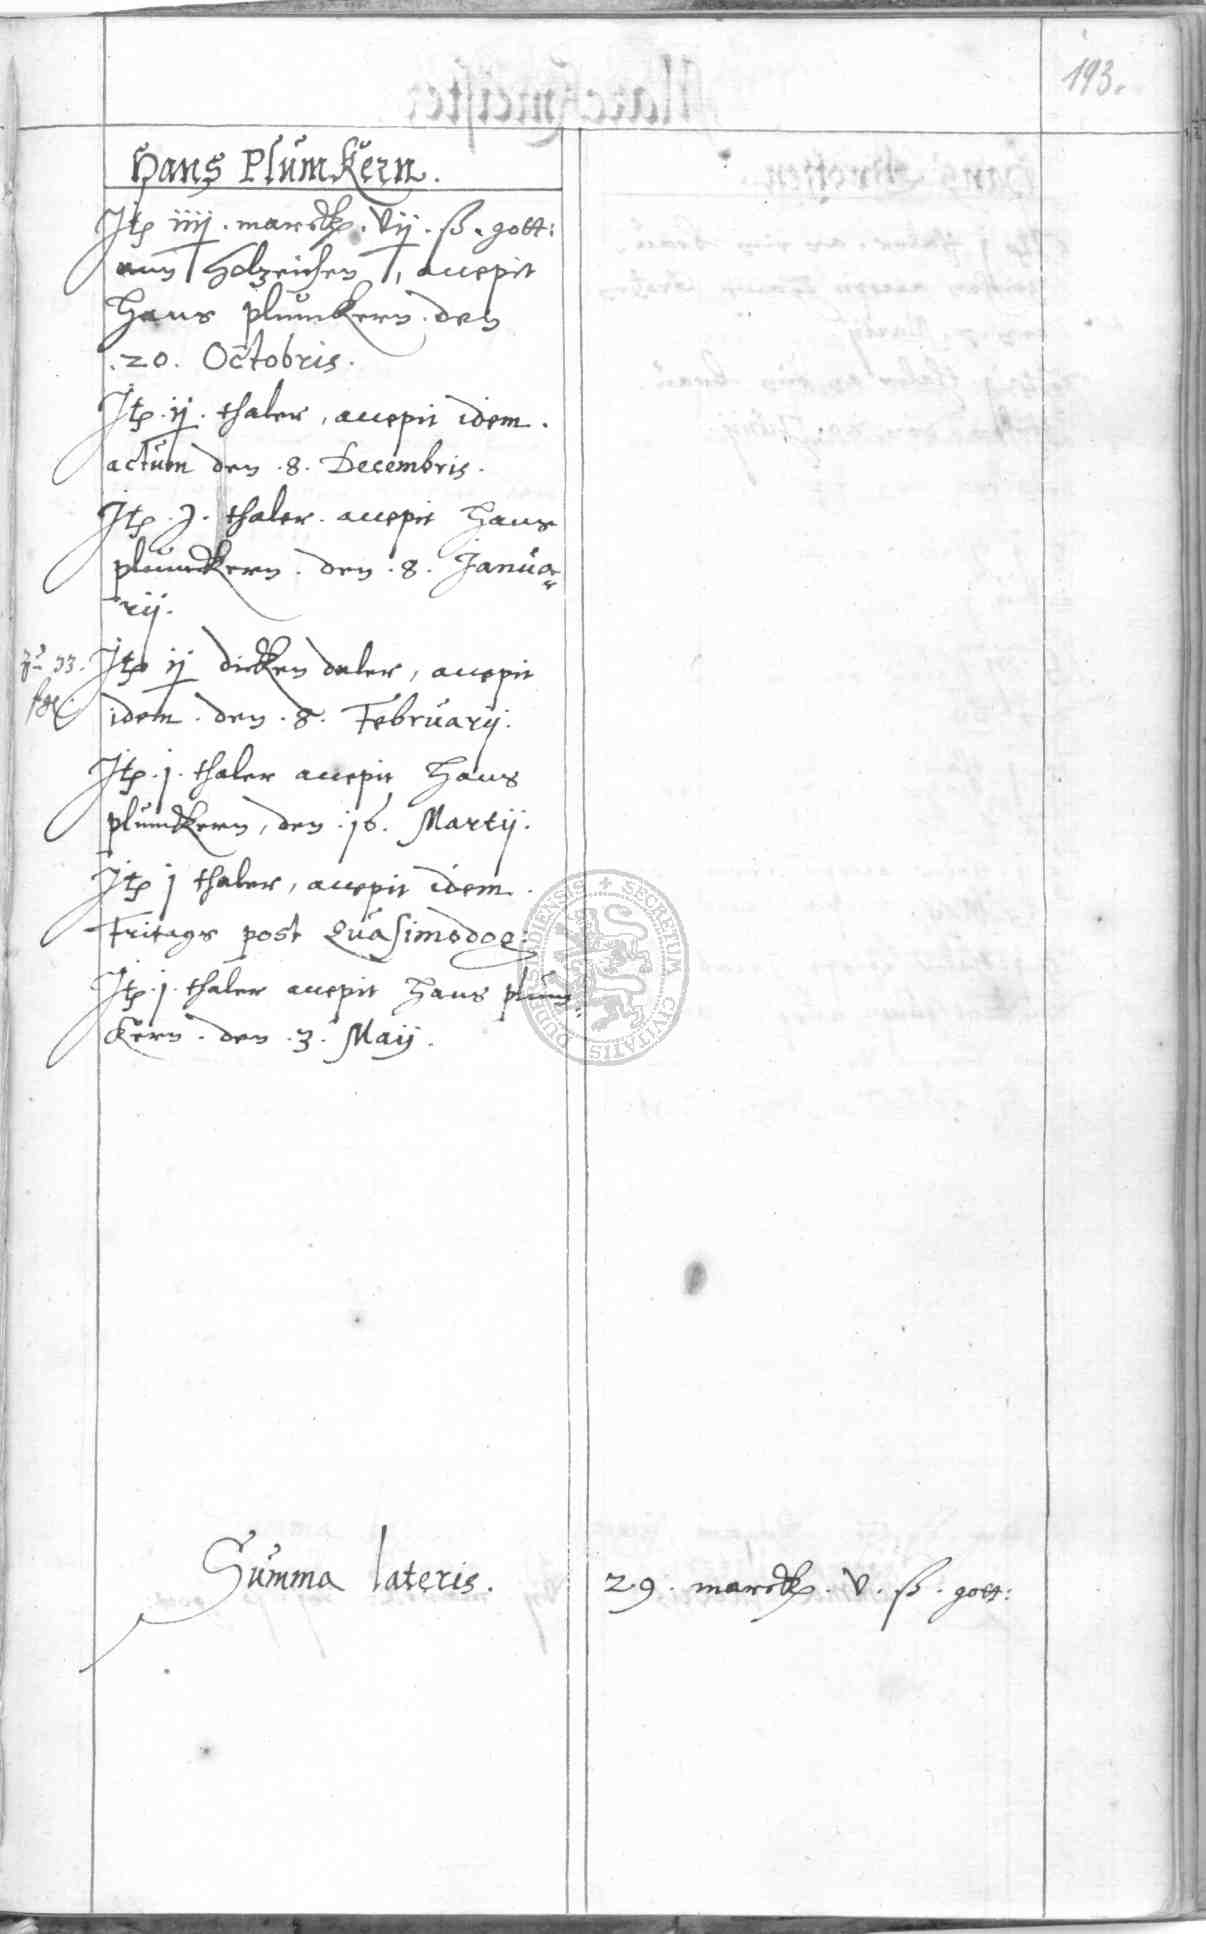 193.
Hans Plumkern.
Jtẹ iiij. marck. vij. ß. gott:
ann Holzeichen, accepit
Hans plumkern. den
.20. Octobris.
Jtẹ. ij. thaler, accepit idem.
actum den .8. Decembris.
Jtẹ. j. thaler. accepit Hans
plumckern. den .8. Janua
rij.
zu 33.
Jtẹ ij dicken daler, accepit
idem. den .8. Februarij.
Jtẹ. j. thaler accepit Hans
plumckern, den .16. Martij.
Jtẹ j thaler, accepit idem.
Fritags post Quasimodog:
Jtẹ. j. thaler accepit Hans plum
kern. den .3. Maij.
SECRETUM CIVITATIS DUDERSTADIENSIS
Summa lateris. 29. marck. v. ß. gott: